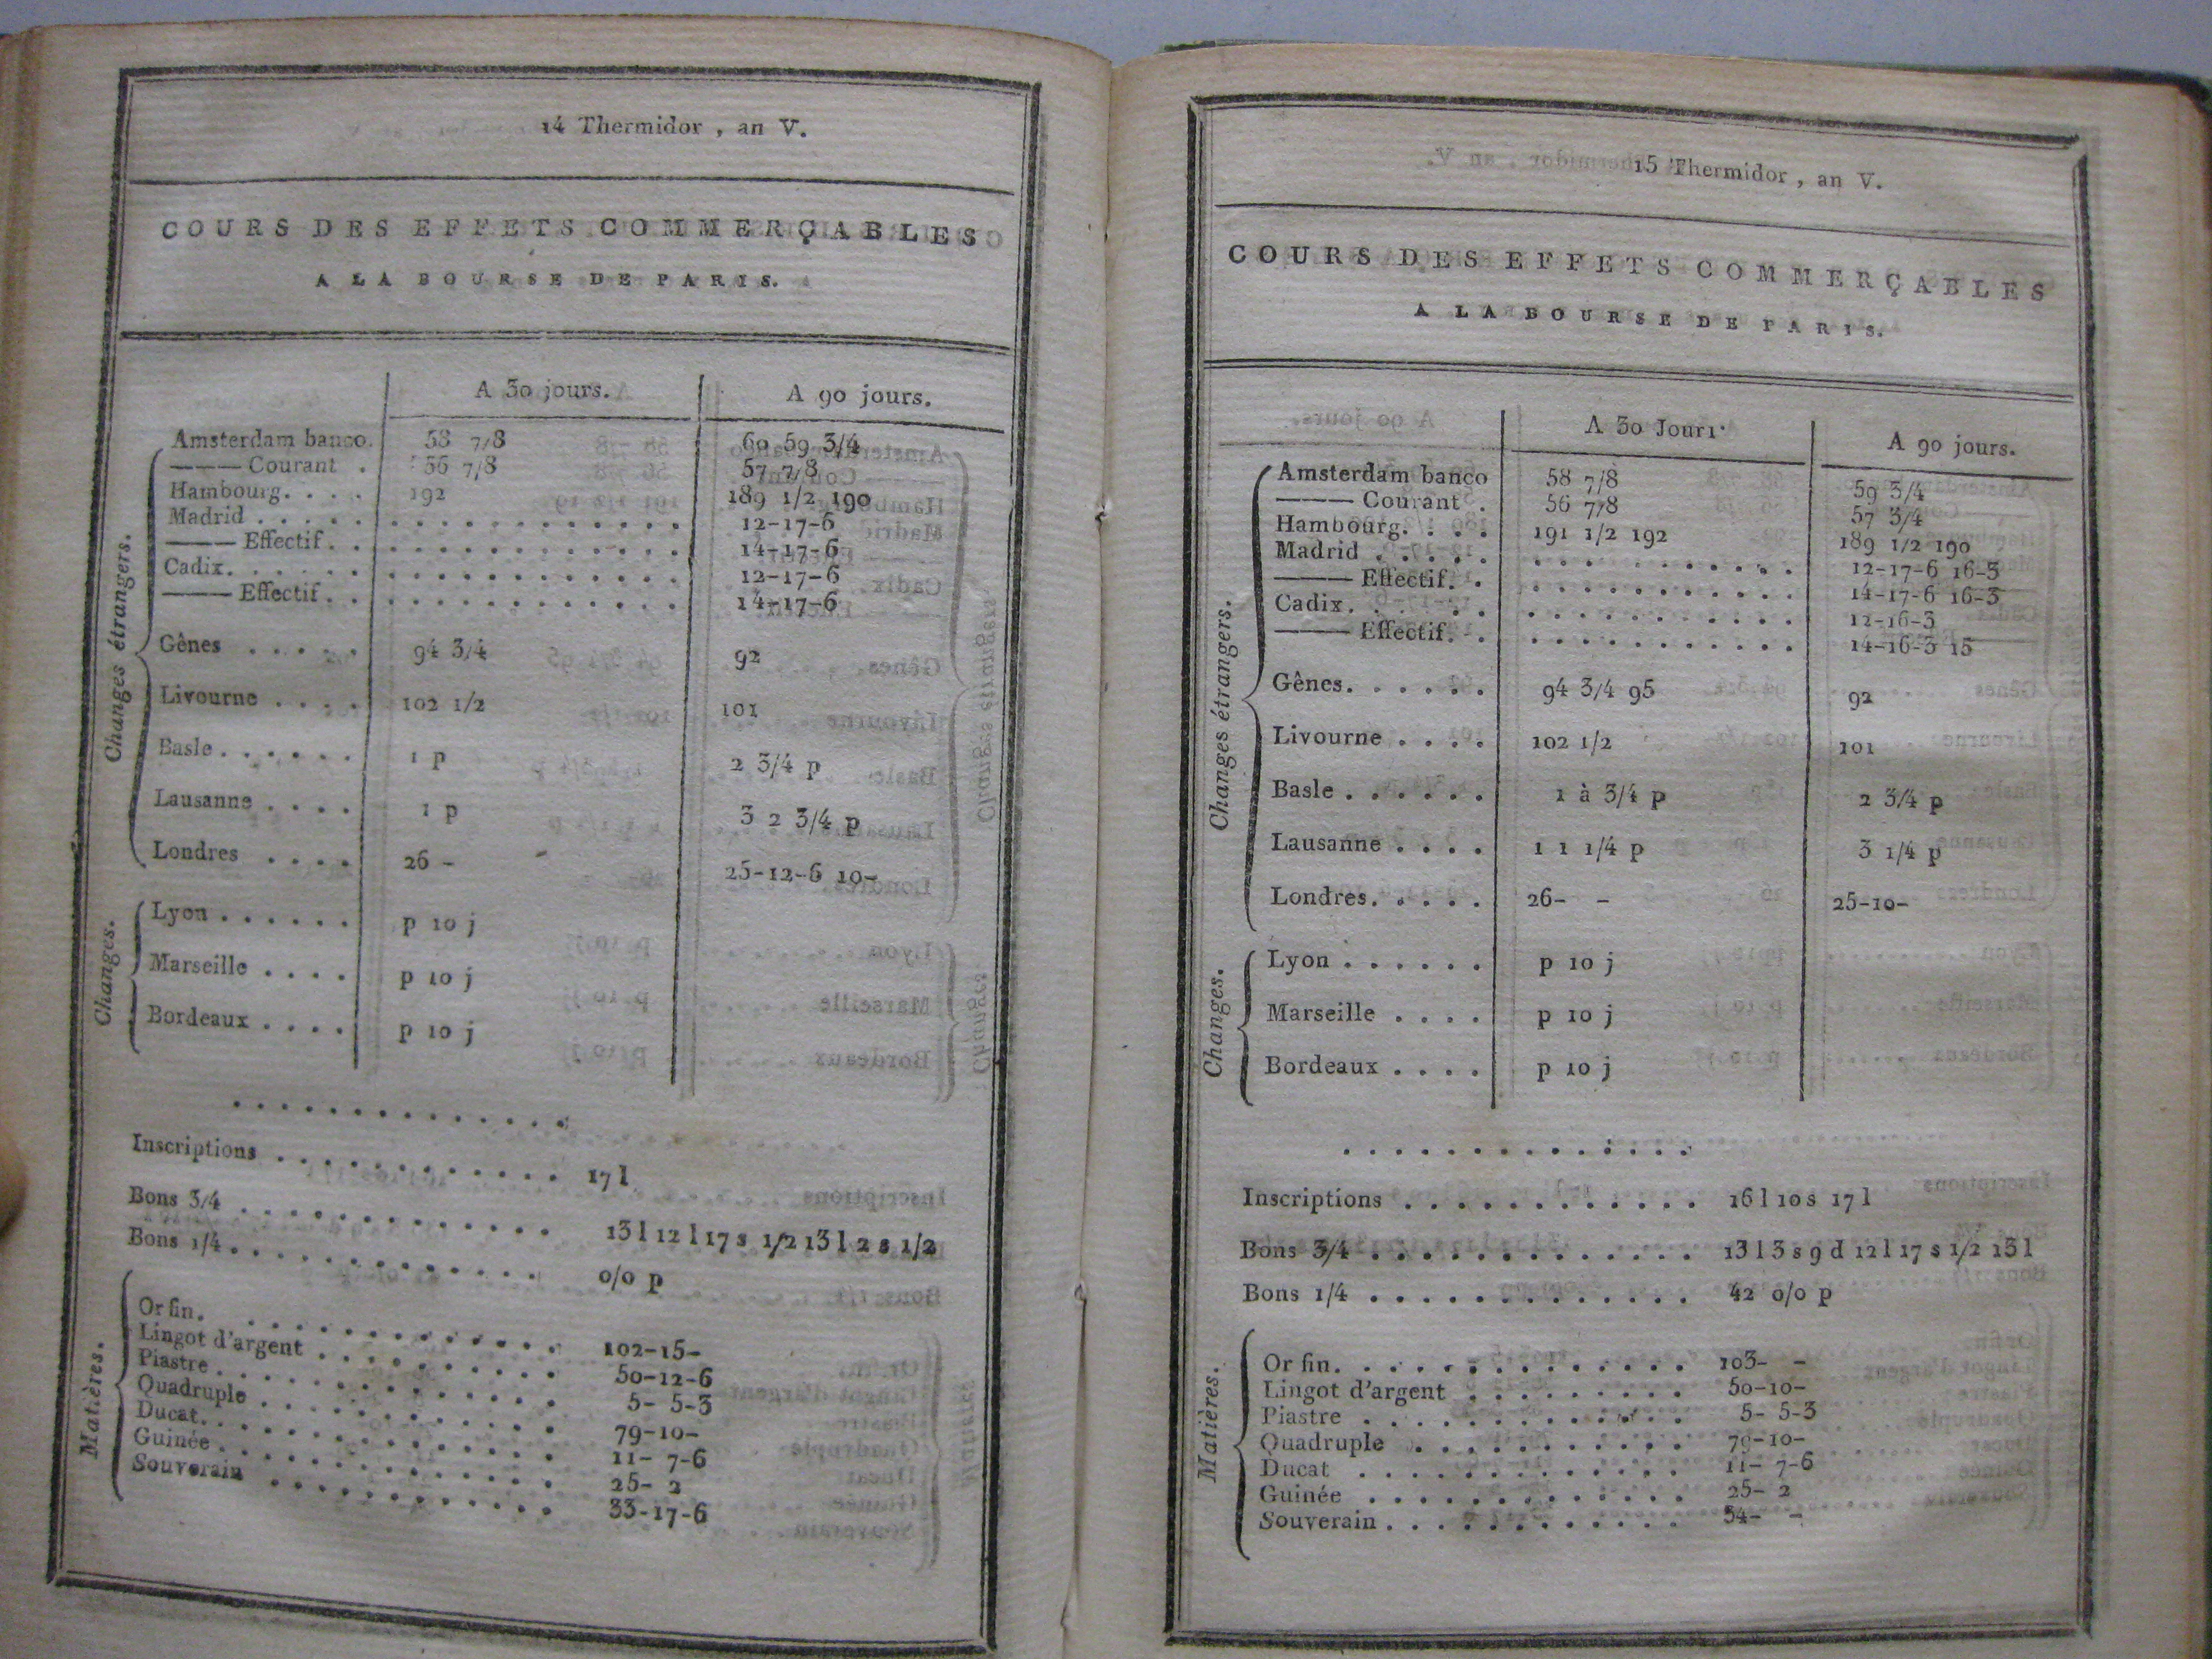 14 Thermidor , an V.
COURS DES EFFETS COMMERÇABLES
A LA BOURSE DE PARIS.
A 30 jours. A 90 jours.
Changes étrangers.
Amsterdam banco. 58 7/8 60 59 3/4
——— Courant . 56 7/8 57 7/8
Hambourg. . . . 192 189 1/2 190
Madrid . . . . . . . . . . . . . . . . . 12-17-6
——— Effectif. . . . . . . . . . . . . . 14-17-6
Cadix. . . . . . . . . . . . . . . . . . 12-17-6
——— Effectif. . . . . . . . . . . . . . 14-17-6
Gênes . . . . . 94 3/4 92
Livourne . . . . 102 1/2 101
Basle . . . . . . 1 p 2 3/4 p
Lausanne . . . . 1 p 3 2 3/4 p
Londres . . . . 26 - 25-12-6 10-
Changes.
Lyon . . . . . . p 10 j
Marseille . . . . p 10 j
Bordeaux . . . . p 10 j
. . . . . . . . . . . . . .
Inscriptions . . . . . . . . . . . . 17 l
Bons 3/4 . . . . . . . . . . . . . 13 l 12 l 17 s 1/2 13 l 2 s 1/2
Bons 1/4 . . . . . . . . . . . . . 0/0 p
Matières.
Or fin. . . . . . . . . . . . . . 102-15-
Lingot d'argent . . . . . . . . . . 50-12-6
Piastre . . . . . . . . . . . . . . 5- 5-3
Quadruple . . . . . . . . . . . . 79-10-
Ducat. . . . . . . . . . . . . . . 11- 7-6
Guinée . . . . . . . . . . . . . . 25- 2
Souverain . . . . . . . . . . . . 33-17-6
15 Thermidor , an V.
COURS DES EFFETS COMMERÇABLES
A LA BOURSE DE PARIS.
A 30 Jours. A 90 jours.
Changes étrangers.
Amsterdam banco 58 7/8 59 3/4
——— Courant . 56 7/8 57 3/4
Hambourg. . . . 191 1/2 192 189 1/2 190
Madrid . . . . . . . . . . . . . . . . 12-17-6 16-3
——— Effectif. . . . . . . . . . . . . 14-17-6 16-3
Cadix. . . . . . . . . . . . . . . . . 12-16-3
——— Effectif. . . . . . . . . . . . . 14-16-3 15
Gênes. . . . . . 94 3/4 95 92
Livourne . . . . 102 1/2 101
Basle . . . . . . 1 à 3/4 p 2 3/4 p
Lausanne . . . . 1 1 1/4 p 3 1/4 p
Londres. . . . . 26- - 25-10-
Changes.
Lyon . . . . . . p 10 j
Marseille . . . . p 10 j
Bordeaux . . . . p 10 j
. . . . . . . . . . . . . .
Inscriptions . . . . . . . . . . . . 16 l 10 s 17 l
Bons 3/4 . . . . . . . . . . . . . 13 l 3 s 9 d 12 l 17 s 1/2 13 l
Bons 1/4 . . . . . . . . . . . . . 42 0/0 p
Matières.
Or fin. . . . . . . . . . . . . . 103- -
Lingot d'argent . . . . . . . . . 50-10-
Piastre . . . . . . . . . . . . . 5- 5-3
Quadruple . . . . . . . . . . . 79-10-
Ducat . . . . . . . . . . . . . 11- 7-6
Guinée . . . . . . . . . . . . . 25- 2
Souverain . . . . . . . . . . . . 34- -